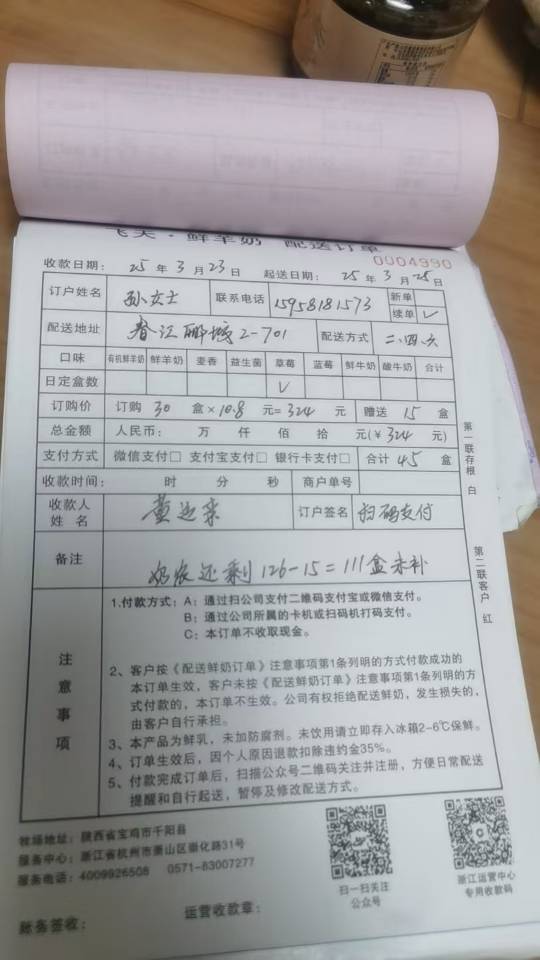 飞天·鲜羊奶 配送订单
0004990
收款日期: 25 年 3 月 23 日 起送日期: 25 年 3 月 25 日
订户姓名 孙女士 联系电话 15958181573 新单
续单 ✓
配送地址 春江郦城2-701 配送方式 二.四.六
口味 有机鲜羊奶 鲜羊奶 麦香 益生菌 草莓 蓝莓 鲜牛奶 酸牛奶 合计
日定盒数 ✓
订购价 订购 30 盒×10.8 元=324 元 赠送 15 盒
总金额 人民币: 万 仟 佰 拾 元(¥ 324 元)
支付方式 微信支付□ 支付宝支付□ 银行卡支付□ 合计 45 盒
收款时间: 时 分 秒 商户单号
收款人姓名 黄运来 订户签名 扫码支付
备注 还剩 126-15=111盒未补
注意事项
1.付款方式: A: 通过扫公司支付二维码支付宝或微信支付。
B: 通过公司所属的卡机或扫码机打码支付。
C: 本订单不收取现金。
2、客户按《配送鲜奶订单》注意事项第1条列明的方式付款成功的
本订单生效，客户未按《配送鲜奶订单》注意事项第1条列明的方
式付款的，本订单不生效。公司有权拒绝配送鲜奶，发生损失的，
由客户自行承担。
3、本产品为鲜乳，未加防腐剂。未饮用请立即存入冰箱2-6℃保鲜。
4、订单生效后，因个人原因退款扣除违约金35%。
5、付款完成订单后，扫描公众号二维码关注并注册，方便日常配送
提醒和自行起送，暂停及修改配送方式。
第一联存根 白
第二联客户 红
牧场地址: 陕西省宝鸡市千阳县
服务中心: 浙江省杭州市萧山区崇化路31号
服务电话: 4009926508 0571-83007277
扫一扫关注
公众号
浙江运营中心
专用收款码
账务签收: 运营收款章: